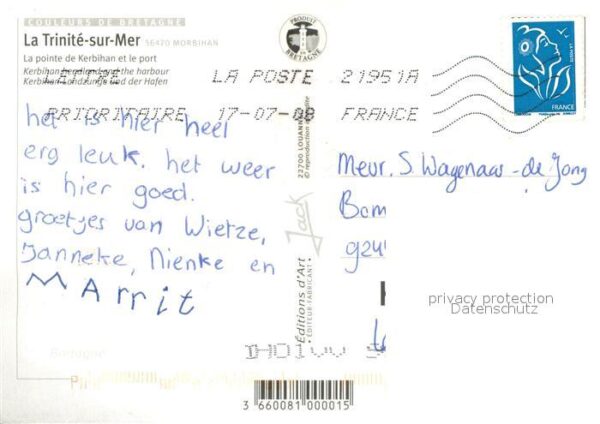 COULEURS DE BRETAGNE
La Trinité-sur-Mer 56470 MORBIHAN
La pointe de Kerbihan et le port
Kerbihan headland and the harbour
Kerbihan-Landzunge und der Hafen
PRODUIT
BRETAGNE
LETTRE
PRIORITAIRE
LA POSTE 21951A
17-07-08 FRANCE
LA POSTE
FRANCE
het is hier heel
erg leuk. het weer
is hier goed.
groetjes van Wietze,
Janneke, Nienke en
MArrit
22700 LOUANNEC
© reproduction interdite
Jack
Editions d'Art
EDITEUR-FABRICANT
Mevr. S. Wagenaar-de Jong
Bom
privacy protection
Datenschutz
Bretagne
3 660081 000015